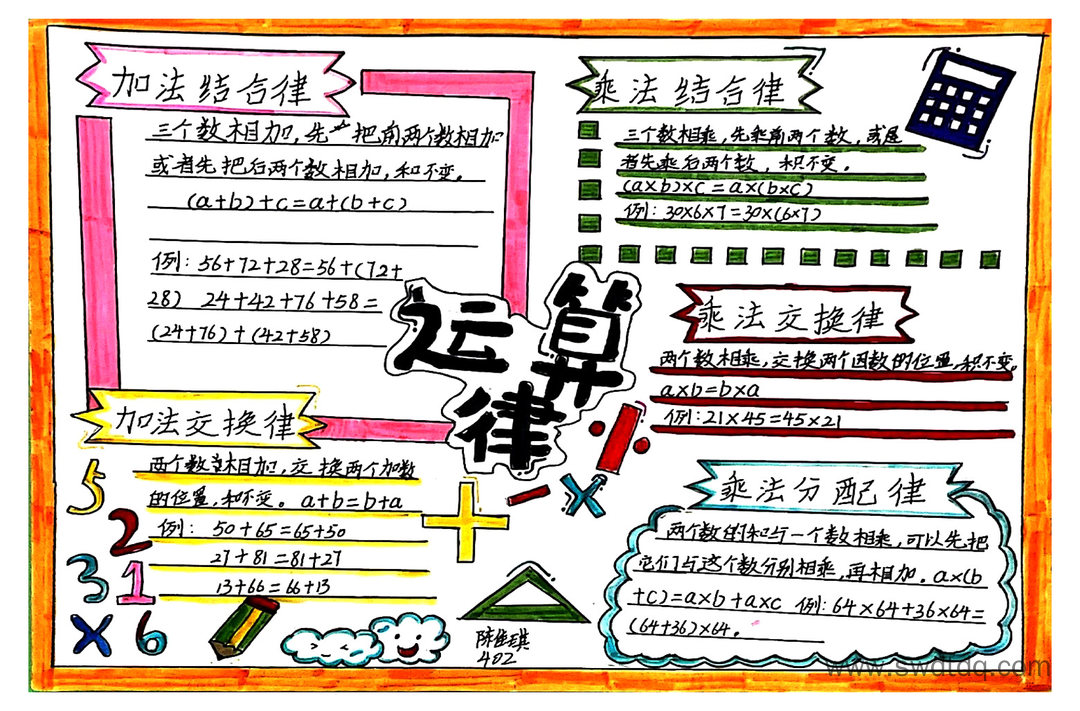 加法结合律
三个数相加,先把前两个数相加
或者先把后两个数相加,和不变。
(a+b)+c=a+(b+c)
例:56+72+28=56+(72+
28) 24+42+76+58=
(24+76)+(42+58)
加法交换律
两个数相加,交换两个加数
的位置,和不变。a+b=b+a
例: 50+65=65+50
27+81=81+27
13+66=66+13
运算
律
乘法结合律
三个数相乘,先乘前两个数,或是
者先乘后两个数,积不变。
(a×b)×c=a×(b×c)
例:30×6×7=30×(6×7)
乘法交换律
两个数相乘,交换两个因数的位置,积不变。
a×b=b×a
例:21×45=45×21
乘法分配律
两个数的和与一个数相乘,可以先把
它们与这个数分别相乘,再相加。a×(b
+c)=a×b+a×c 例:64×64+36×64=
(64+36)×64。
5
2
3 1
× 6
+ - × ÷
402
www.swdtdq.com